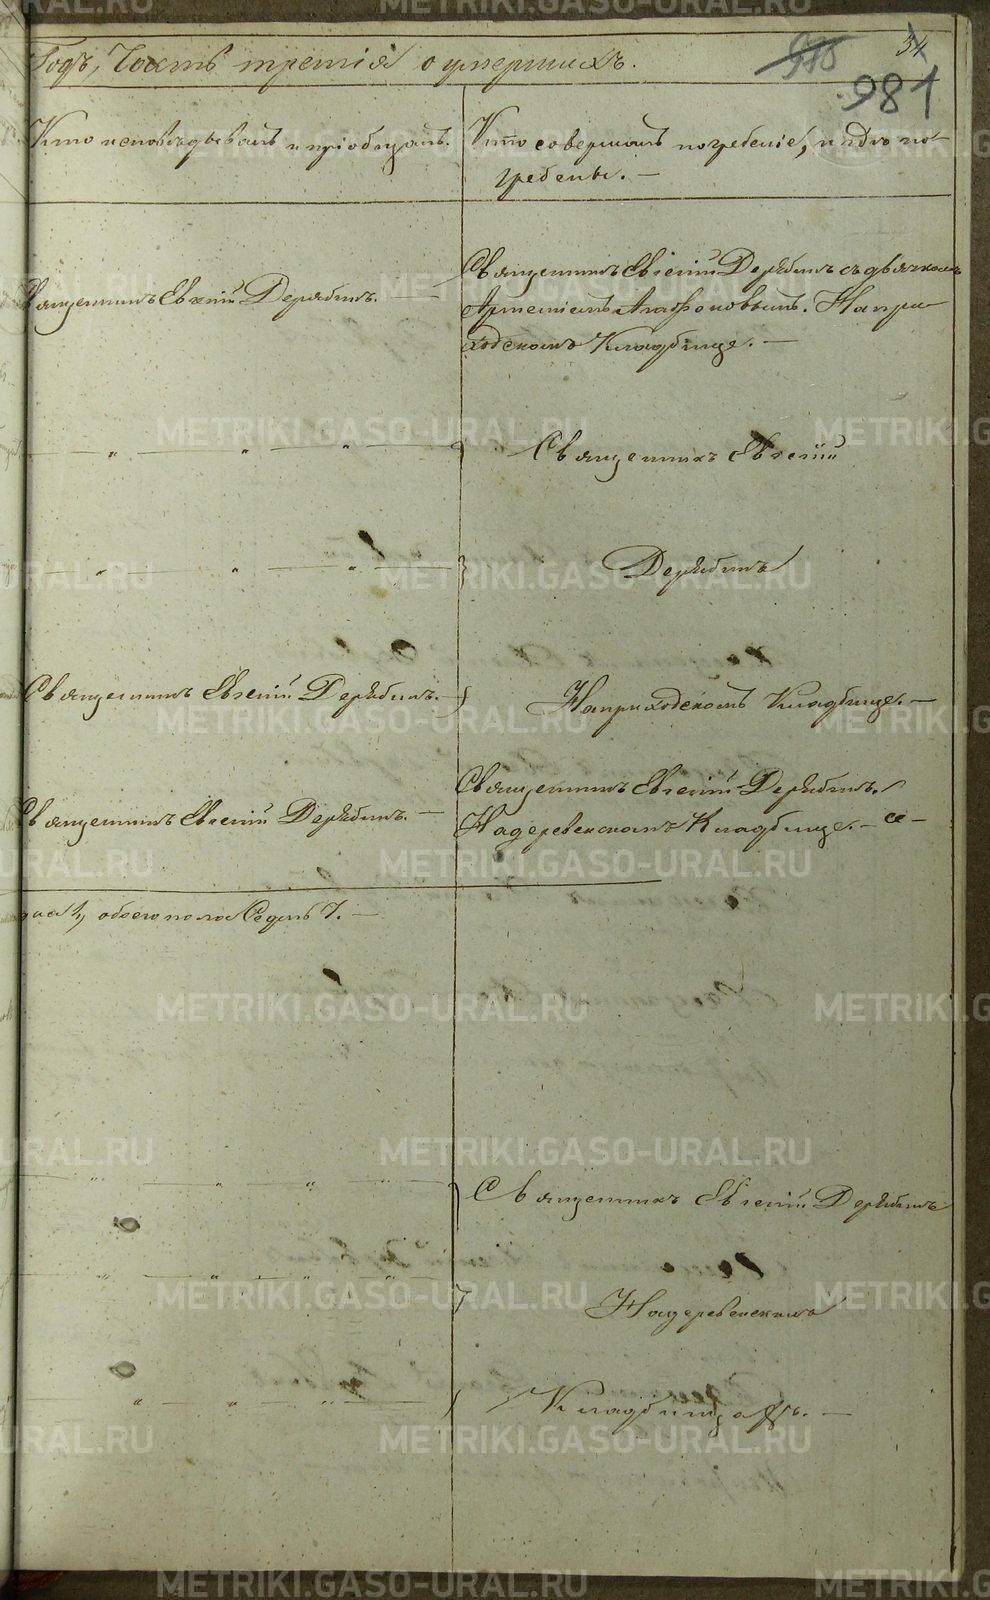 34
981
Годъ, Часть третія о умершихъ.
Кто исповѣдывалъ и пріобщалъ.
Кто совершалъ погребеніе, и гдѣ по-
гребены. —
Священникъ Евгеній Дерябинъ. —
Священникъ Евгеній Дерябинъ съ дьячкомъ
Артеміемъ Агафоновымъ. На при
ходскомъ Кладбище. —
— „ — „ — „ —
Священникъ Евгеній
— „ — „ — „ —
Дерябинъ
Священникъ Евгеній Дерябинъ. —
На приходскомъ Кладбище. —
Священникъ Евгеній Дерябинъ. —
Священникъ Евгеній Дерябинъ.
На деревенскомъ Кладбище. —
обоего пола Седмь 7. —
— „ — „ — „ —
Священникъ Евгеній Дерябинъ
— „ — „ — „ — „ —
На деревенскихъ
— „ — „ — „ —
Кладбищахъ. —
METRIKI.GASO-URAL.RU